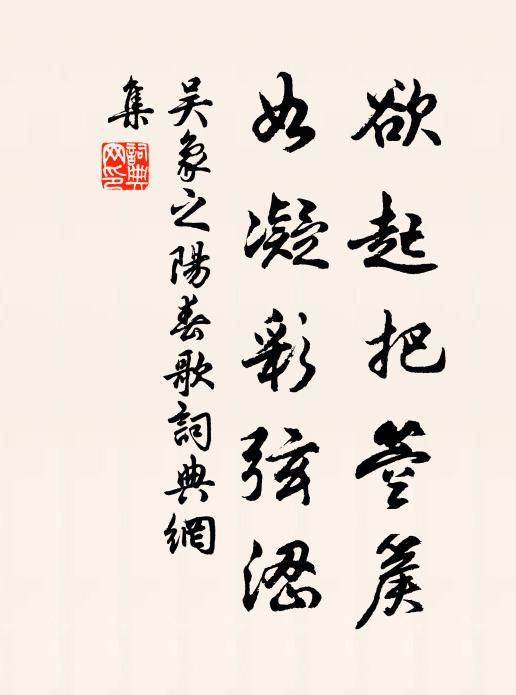 欲起把箜篌
如凝彩弦澀
吳象之陽春歌詞典網
集
詞典網印